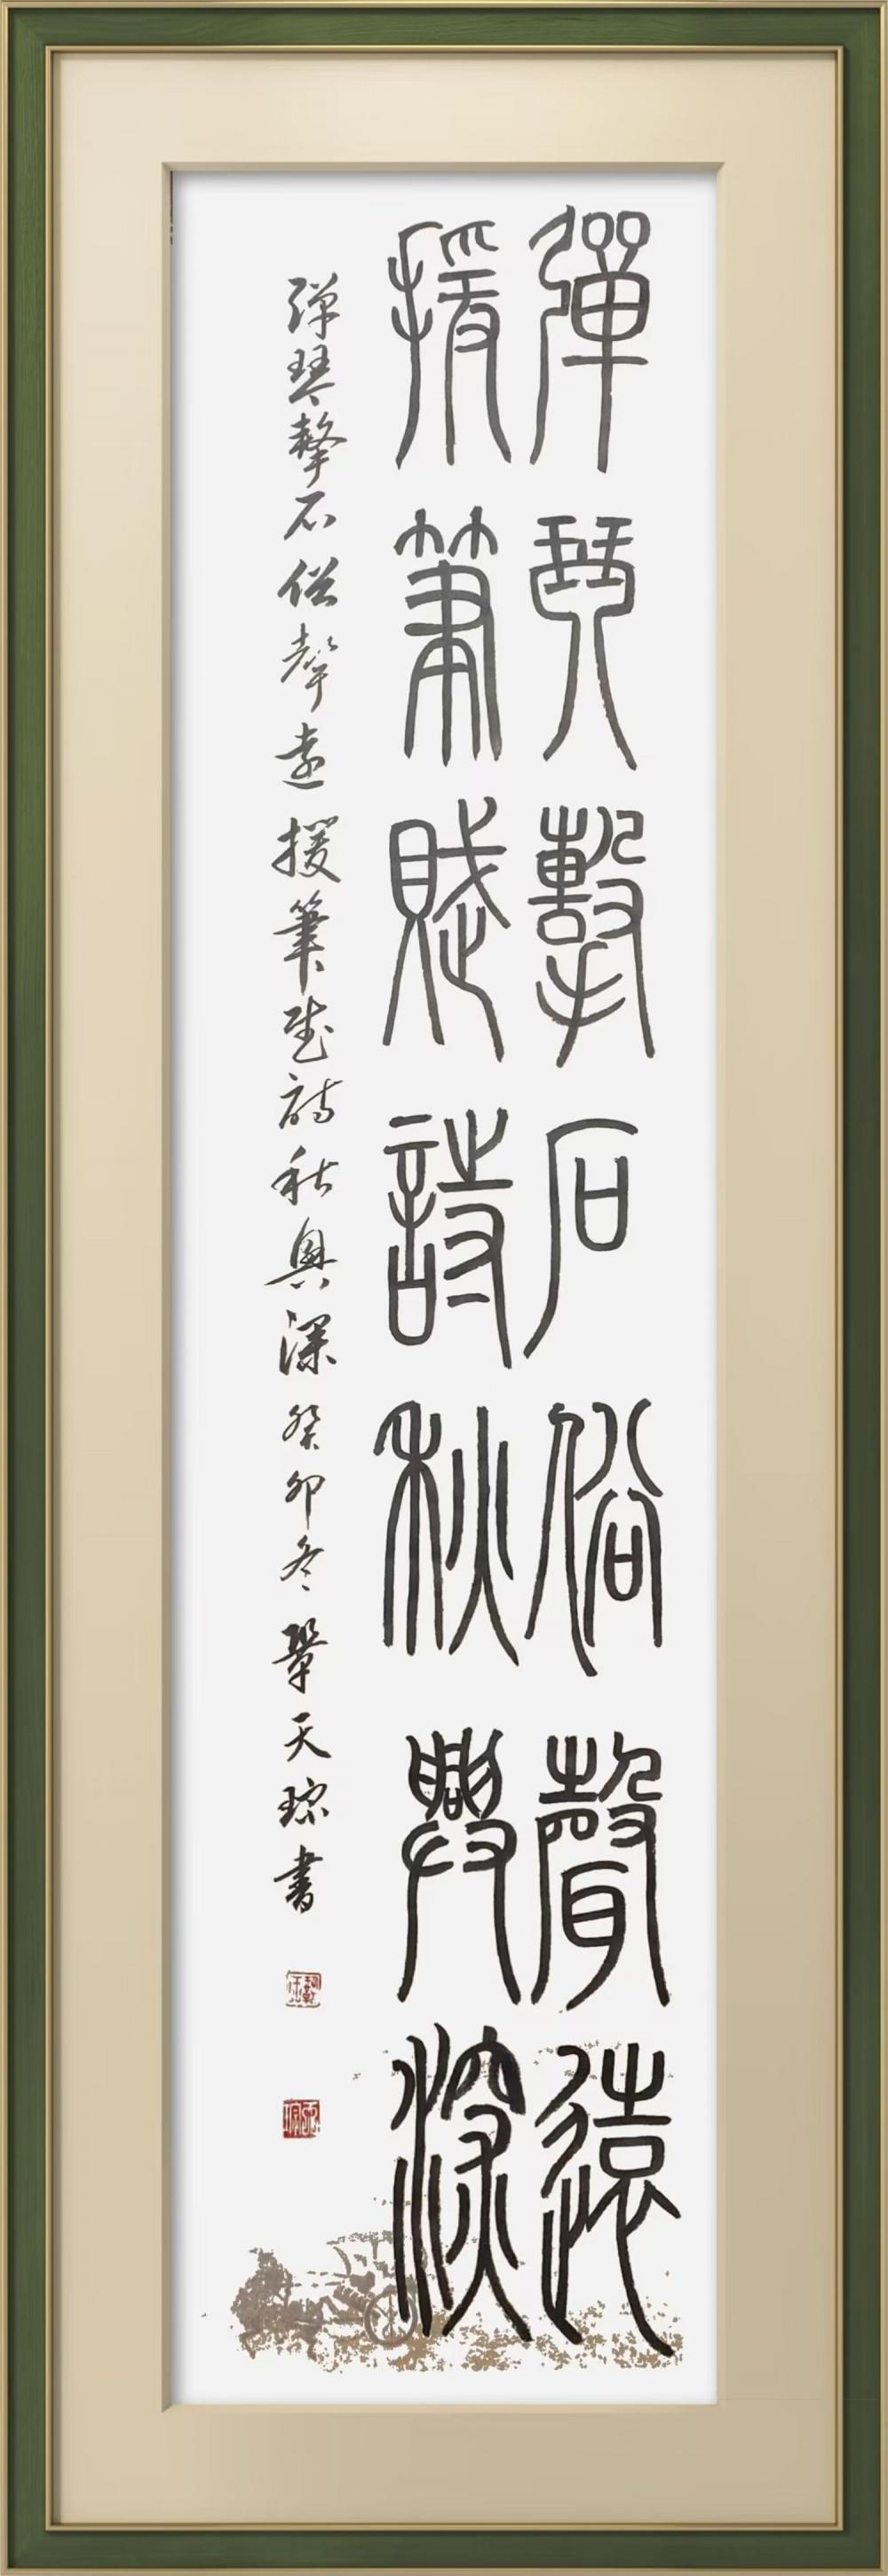 彈琴擊石俗聲遠
援筆賦詩秋興深
弹琴擊石俗聲遠援筆賦詩秋興深癸卯冬鞏天琼書